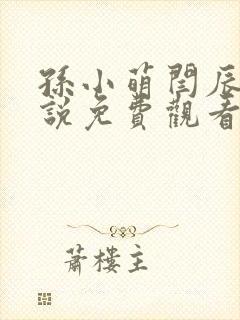 孫小萌閆辰
說免費觀看
蕭樓主